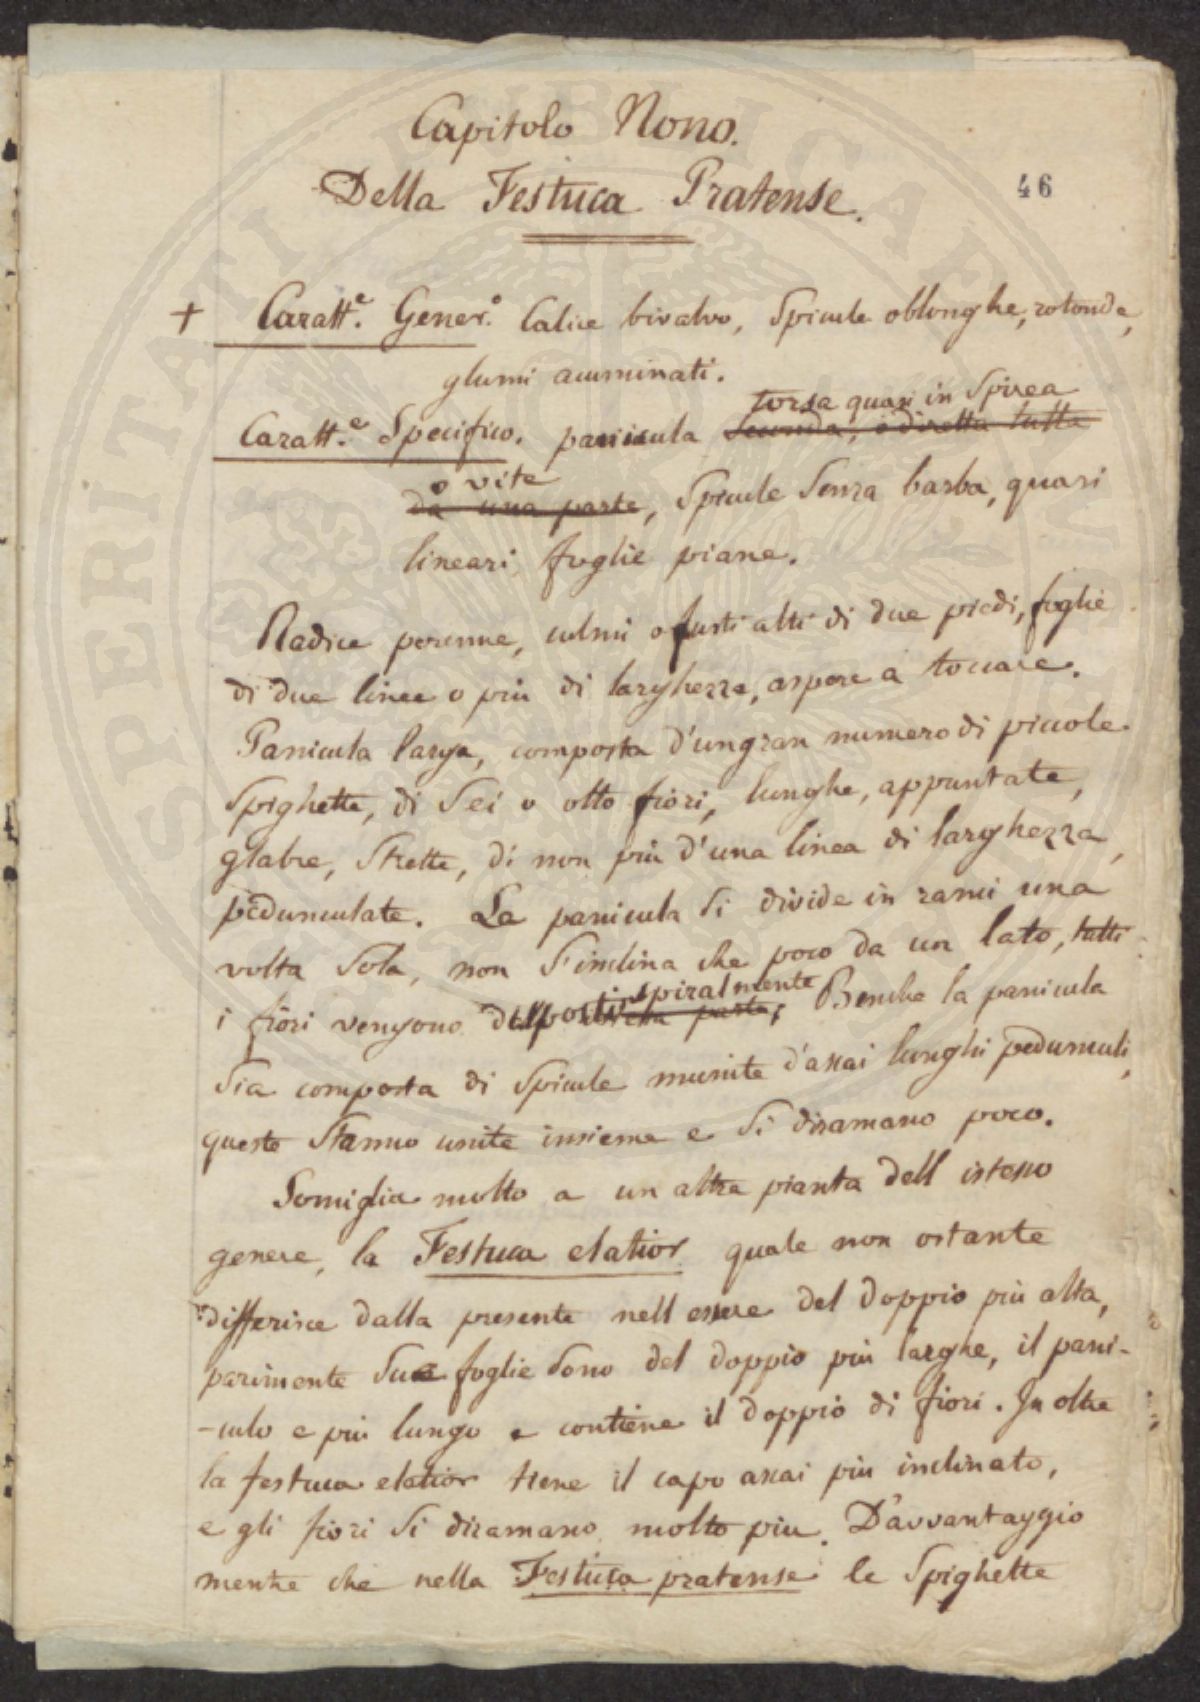 Capitolo Nono.
46
Della Festuca Pratense.
+ Caratt.e Gener.o Calice bivalvo, Spicule oblunghe, rotonde,
glumi acuminati.
torsa quasi in Spirea
Caratt.e Specifico. panicula Seconda, o diretta tutta
o vite
da una parte, Spicule Senza barba, quasi
lineari, foglie piane.
Radice perenne, culmi o fusti alti di due piedi, foglie
di due linee o più di larghezza, aspere a toccare.
Panicula larga, composta d'ungran numero di piccole
Spighette, di Sei o otto fiori, lunghe, appuntate,
glabre, Strette, di non più d'una linea di larghezza,
pedunculate. La panicula Si divide in rami una
volta Sola, non S'inclina che poco da un lato, tutti
spiralmente
i fiori vengono disposti parte; Benche la panicula
Sia composta di Spicule munite d'assai lunghi peduncoli,
queste Stanno unite insieme e Si diramano poco.
Somiglia molto a un altra pianta dell istesso
genere, la Festuca elatior quale non ostante
differisce dalla presente nell essere del doppio più alta,
parimente Sue foglie Sono del doppio più larghe, il pani-
-culo e più lungo e contiene il doppio di fiori. In oltre
la festuca elatior tiene il capo assai più inclinato,
e gli fiori Si diramano molto più. D'avvantaggio
mentre che nella Festuca pratense le Spighette
SPERITATI PUBLICAE